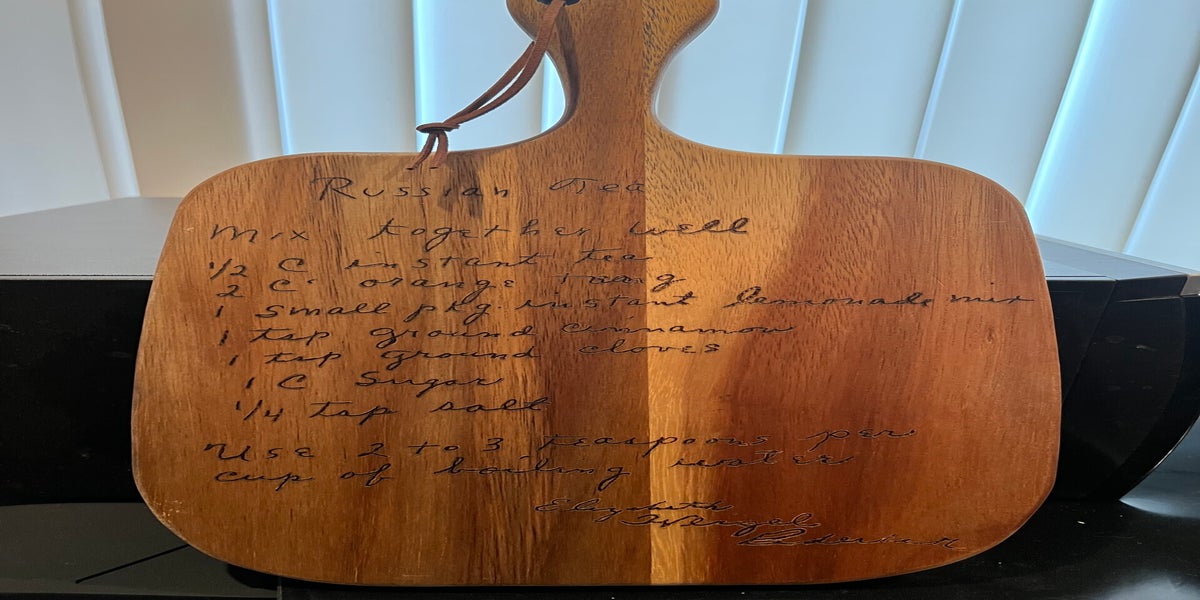 Russian Tea
Mix together well
1/2 C instant tea
2 C. orange Tang
1 small pkg. instant lemonade mix
1 tsp ground cinnamon
1 tsp ground cloves
1 C Sugar
1/4 tsp salt
Use 2 to 3 teaspoons per
cup of boiling water
Elizabeth